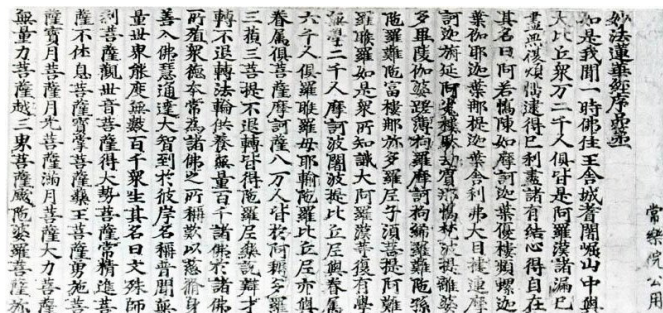 常樂院公用
妙法蓮華經序品第一
如是我聞一時佛住王舍城耆闍崛山中與
大比丘衆万二千人俱皆是阿羅漢諸漏已
盡無復煩惱逮得己利盡諸有結心得自在
其名曰阿若憍陳如摩訶迦葉優樓頻螺迦
葉伽耶迦葉那提迦葉舍利弗大目揵連摩
訶迦旃延阿㝹樓馱劫賓那憍梵波提離婆
多畢陵伽婆蹉薄拘羅摩訶拘絺羅難陀孫
陀羅難陀富樓那弥多羅尼子須菩提阿難
羅睺羅如是衆所知識大阿羅漢等復有學
無學二千人摩訶波闍波提比丘尼與眷屬
六千人俱羅睺羅母耶輸陀羅比丘尼亦與
眷属俱菩薩摩訶薩八万人皆於阿耨多羅
三藐三菩提不退轉皆得陀羅尼樂說辯才
轉不退轉法輪供養無量百千諸佛於諸佛
所殖衆德本常為諸佛之所稱歎以慈脩身
善入佛慧通達大智到於彼岸名稱普聞無
量世界能度無數百千衆生其名曰文殊師
利菩薩觀世音菩薩得大勢菩薩常精進菩
薩不休息菩薩寶掌菩薩藥王菩薩勇施菩
薩寶月菩薩月光菩薩滿月菩薩大力菩薩
無量力菩薩越三界菩薩颰陀婆羅菩薩弥